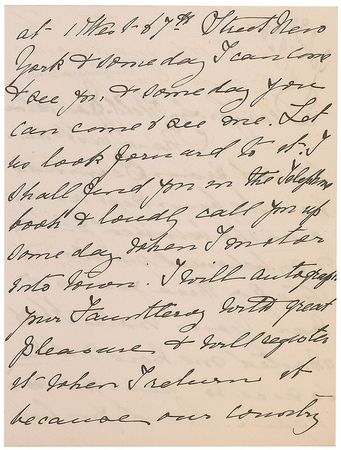 at 1 West 67th Street New
York & some day I can come
& see you, & some day you
can come & see me. Let
us look forward to it. I
shall find you in the Telephone
book & loudly call you up
some day when I motor
into town. I will autograph
your Fauntleroy with great
pleasure & will register
it when I return it
because our country